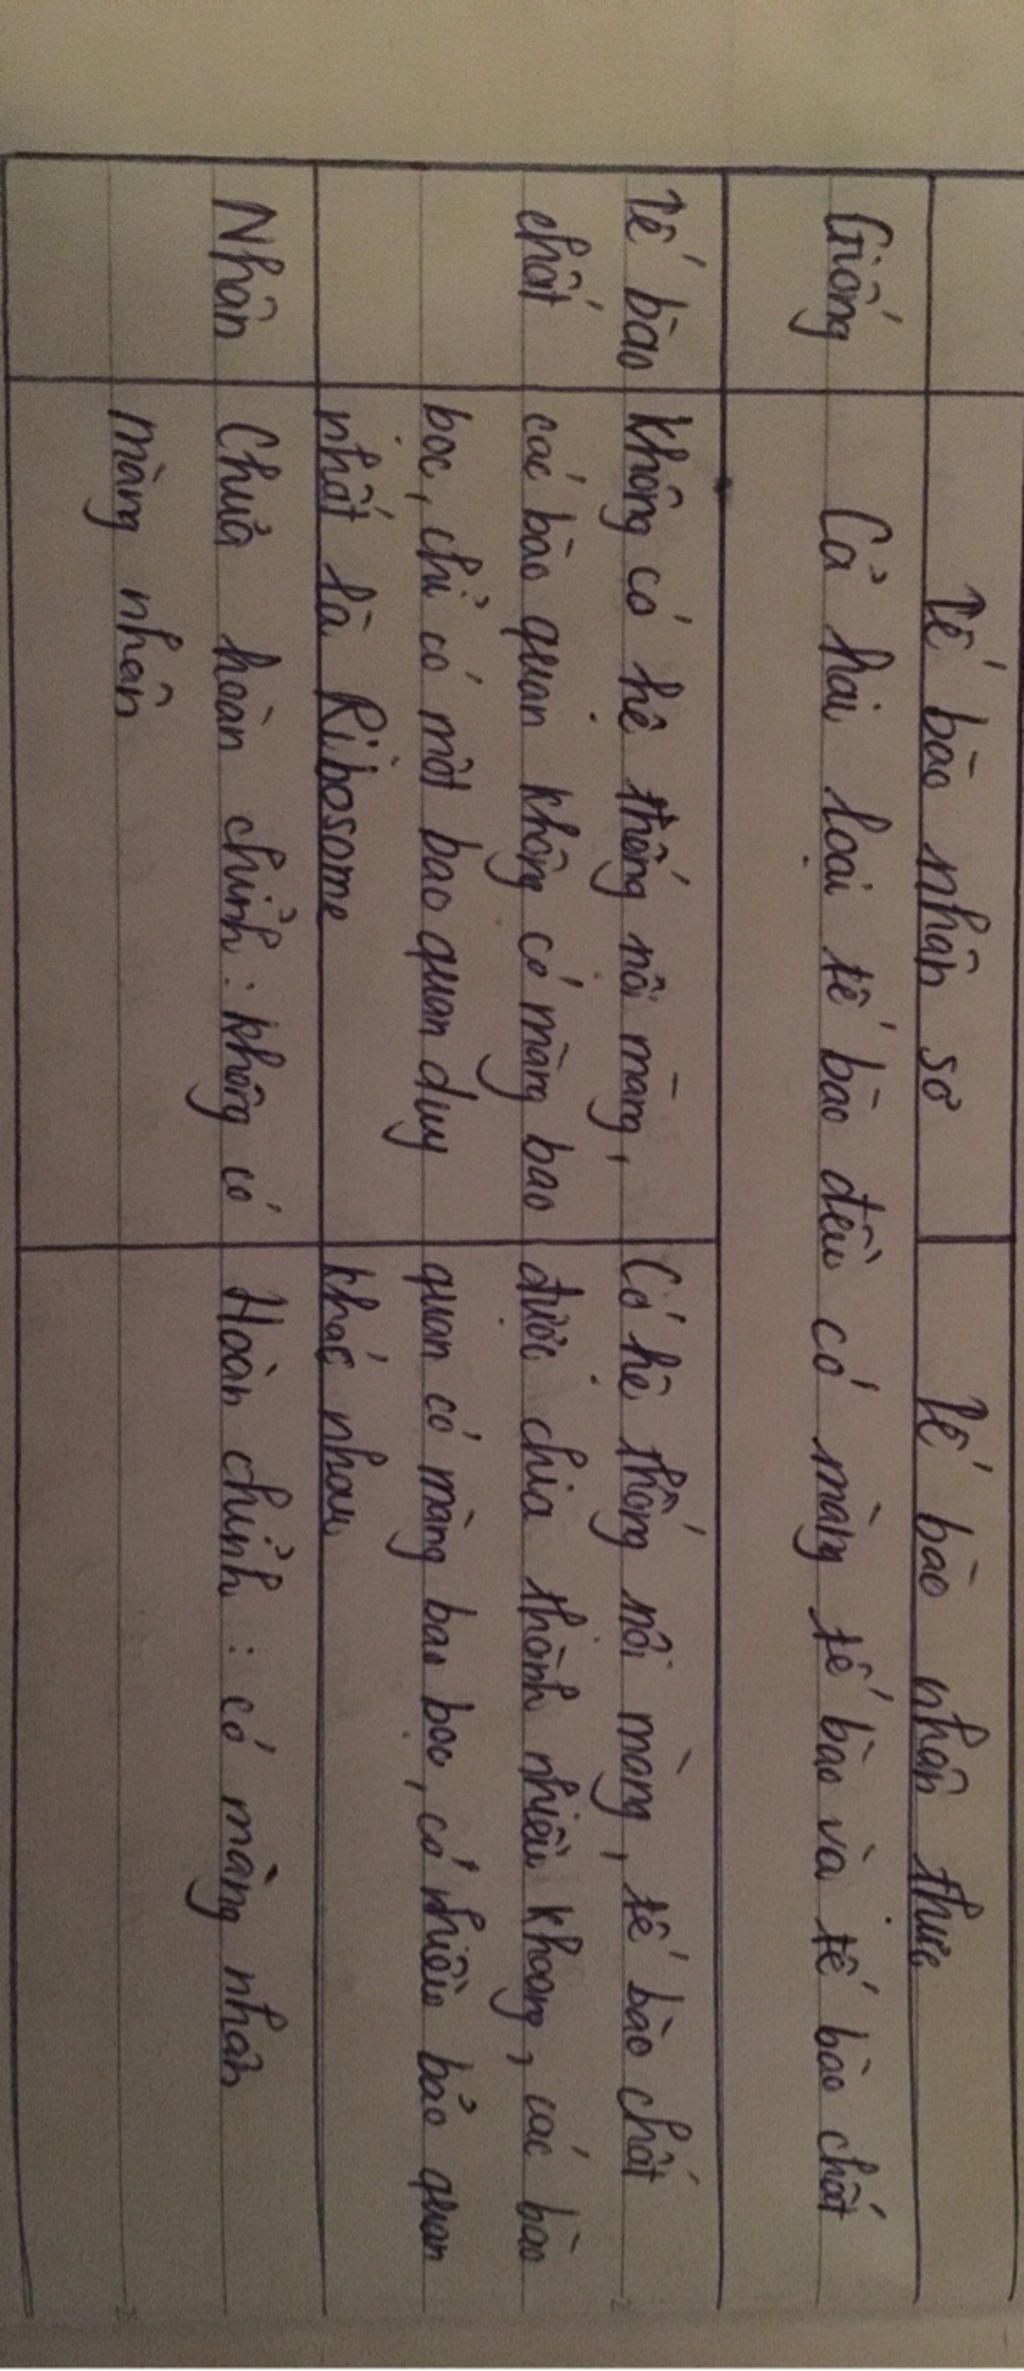 Tế bào nhân sơ Tế bào nhân thực
Giống Cả hai loại tế bào đều có màng tế bào và tế bào chất
Tế bào Không có hệ thống nội màng, Có hệ thống nội màng, tế bào chất
chất các bào quan không có màng bao được chia thành nhiều khoang, các bào
bọc, chỉ có một bao quan duy quan có màng bao bọc, có nhiều bảo quan
nhất là Ribosome khác nhau
Nhân Chưa hoàn chỉnh: không có Hoàn chỉnh: có màng nhân
màng nhân